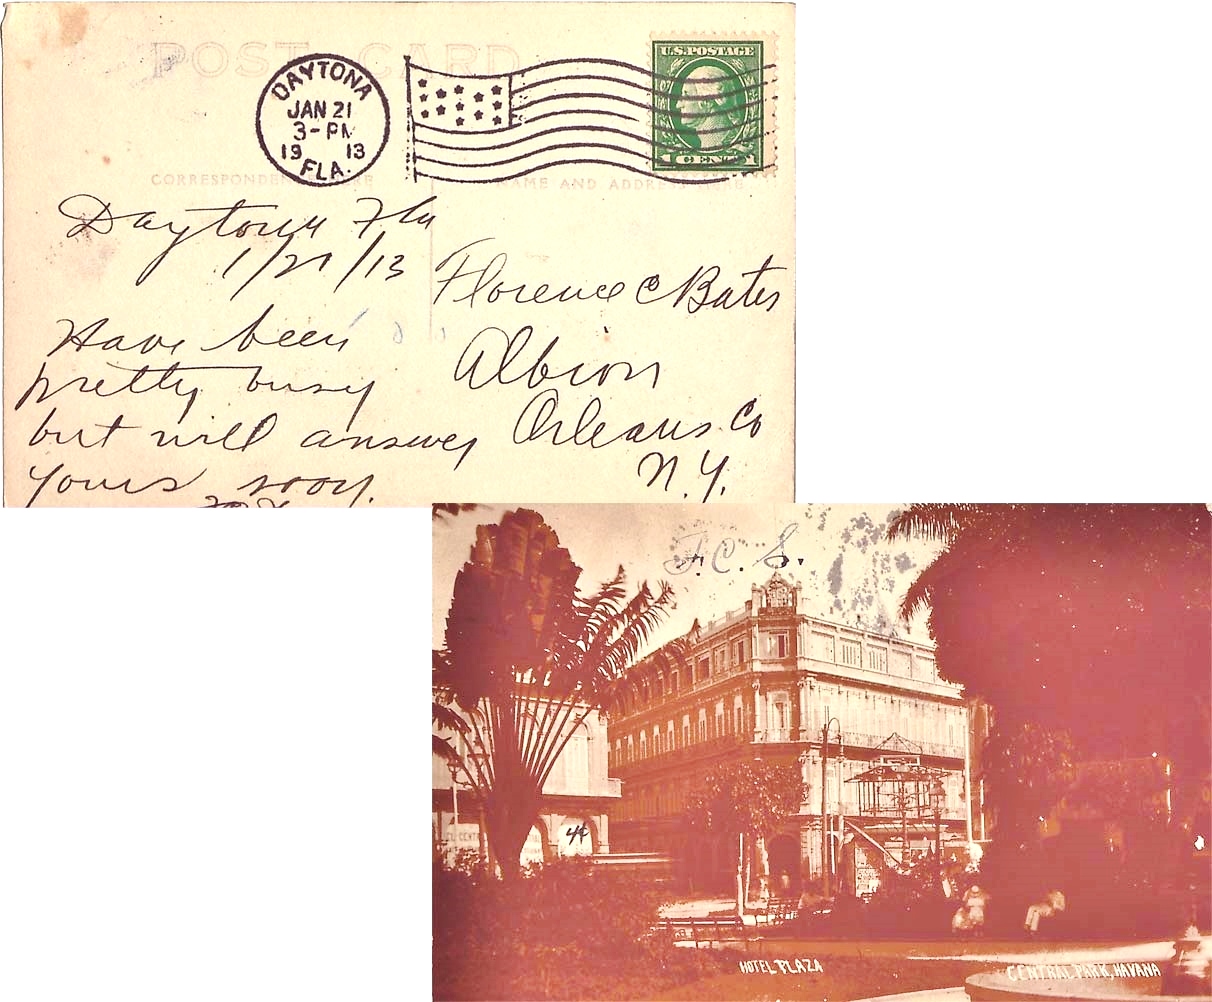 POST CARD
DAYTONA
JAN 21
3-PM
1913
FLA.
U.S. POSTAGE
1 CENT 1
CORRESPONDENCE HERE
NAME AND ADDRESS HERE
Daytona Fla
1/21/13
Have been
pretty busy
but will answer
yours soon.
Florence C Bates
Albion
Orleans Co
N.Y.
F. C. S.
4¢
HOTEL PLAZA
CENTRAL PARK, HAVANA